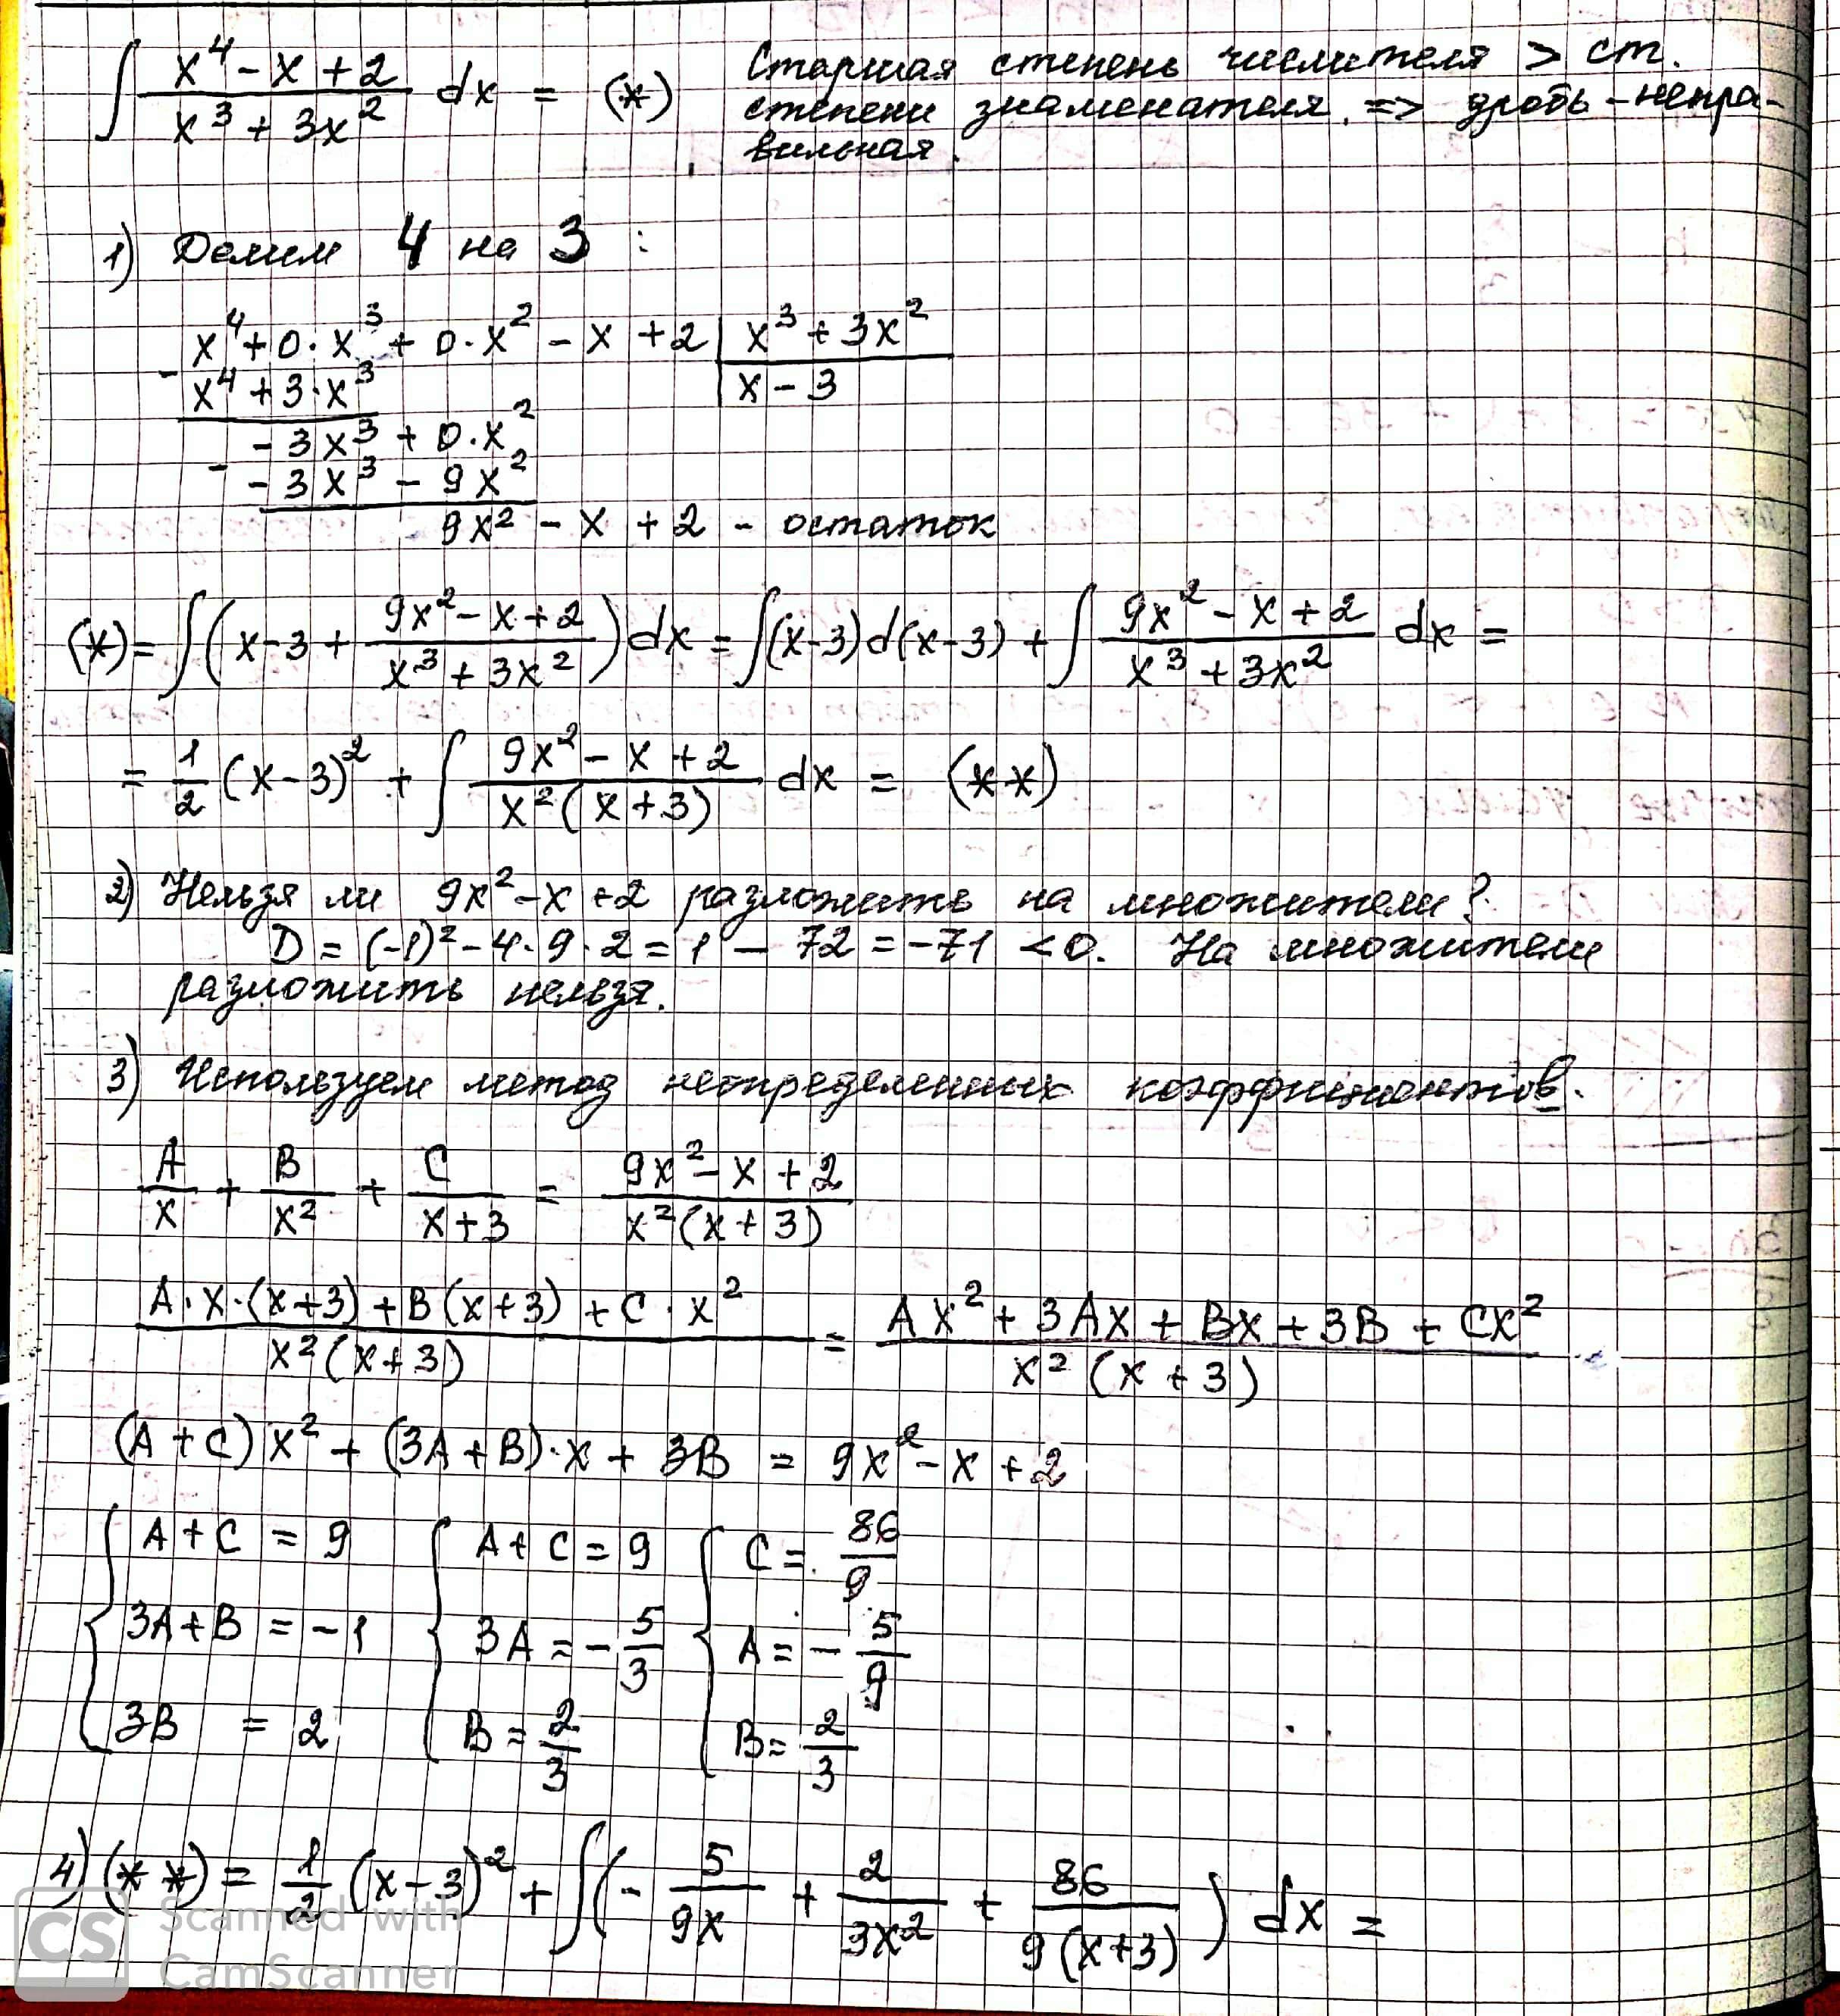 ∫ (x⁴ - x + 2)/(x³ + 3x²) dx = (*) Старшая степень числителя > ст.
степени знаменателя. => дробь - непра-
вильная.
1) Делим 4 на 3 :
x⁴ + 0·x³ + 0·x² - x + 2 | x³ + 3x²
- x⁴ + 3·x³ | x - 3
- 3x³ + 0·x²
- - 3x³ - 9x²
9x² - x + 2 - остаток
(*) = ∫(x-3 + (9x² - x + 2)/(x³ + 3x²))dx = ∫(x-3)d(x-3) + ∫ (9x² - x + 2)/(x³ + 3x²) dx =
= 1/2 (x-3)² + ∫ (9x² - x + 2)/(x²(x+3)) dx = (**)
2) Нельзя ли 9x² - x + 2 разложить на множители?
D = (-1)² - 4·9·2 = 1 - 72 = -71 < 0. На множители
разложить нельзя.
3) Используем метод неопределенных коэффициентов.
A/x + B/x² + C/(x+3) = (9x² - x + 2)/(x²(x+3))
(A·x·(x+3) + B(x+3) + C·x²)/(x²(x+3)) = (Ax² + 3Ax + Bx + 3B + Cx²)/(x²(x+3))
(A+C)x² + (3A+B)·x + 3B = 9x² - x + 2
{ A + C = 9 { A + C = 9 { C = 86/9
3A + B = -1 3A = - 5/3 A = - 5/9
3B = 2 B = 2/3 B = 2/3
4) (**) = 1/2 (x-3)² + ∫(- 5/(9x) + 2/(3x²) + 86/(9(x+3))) dx =
CS Scanned with
CamScanner